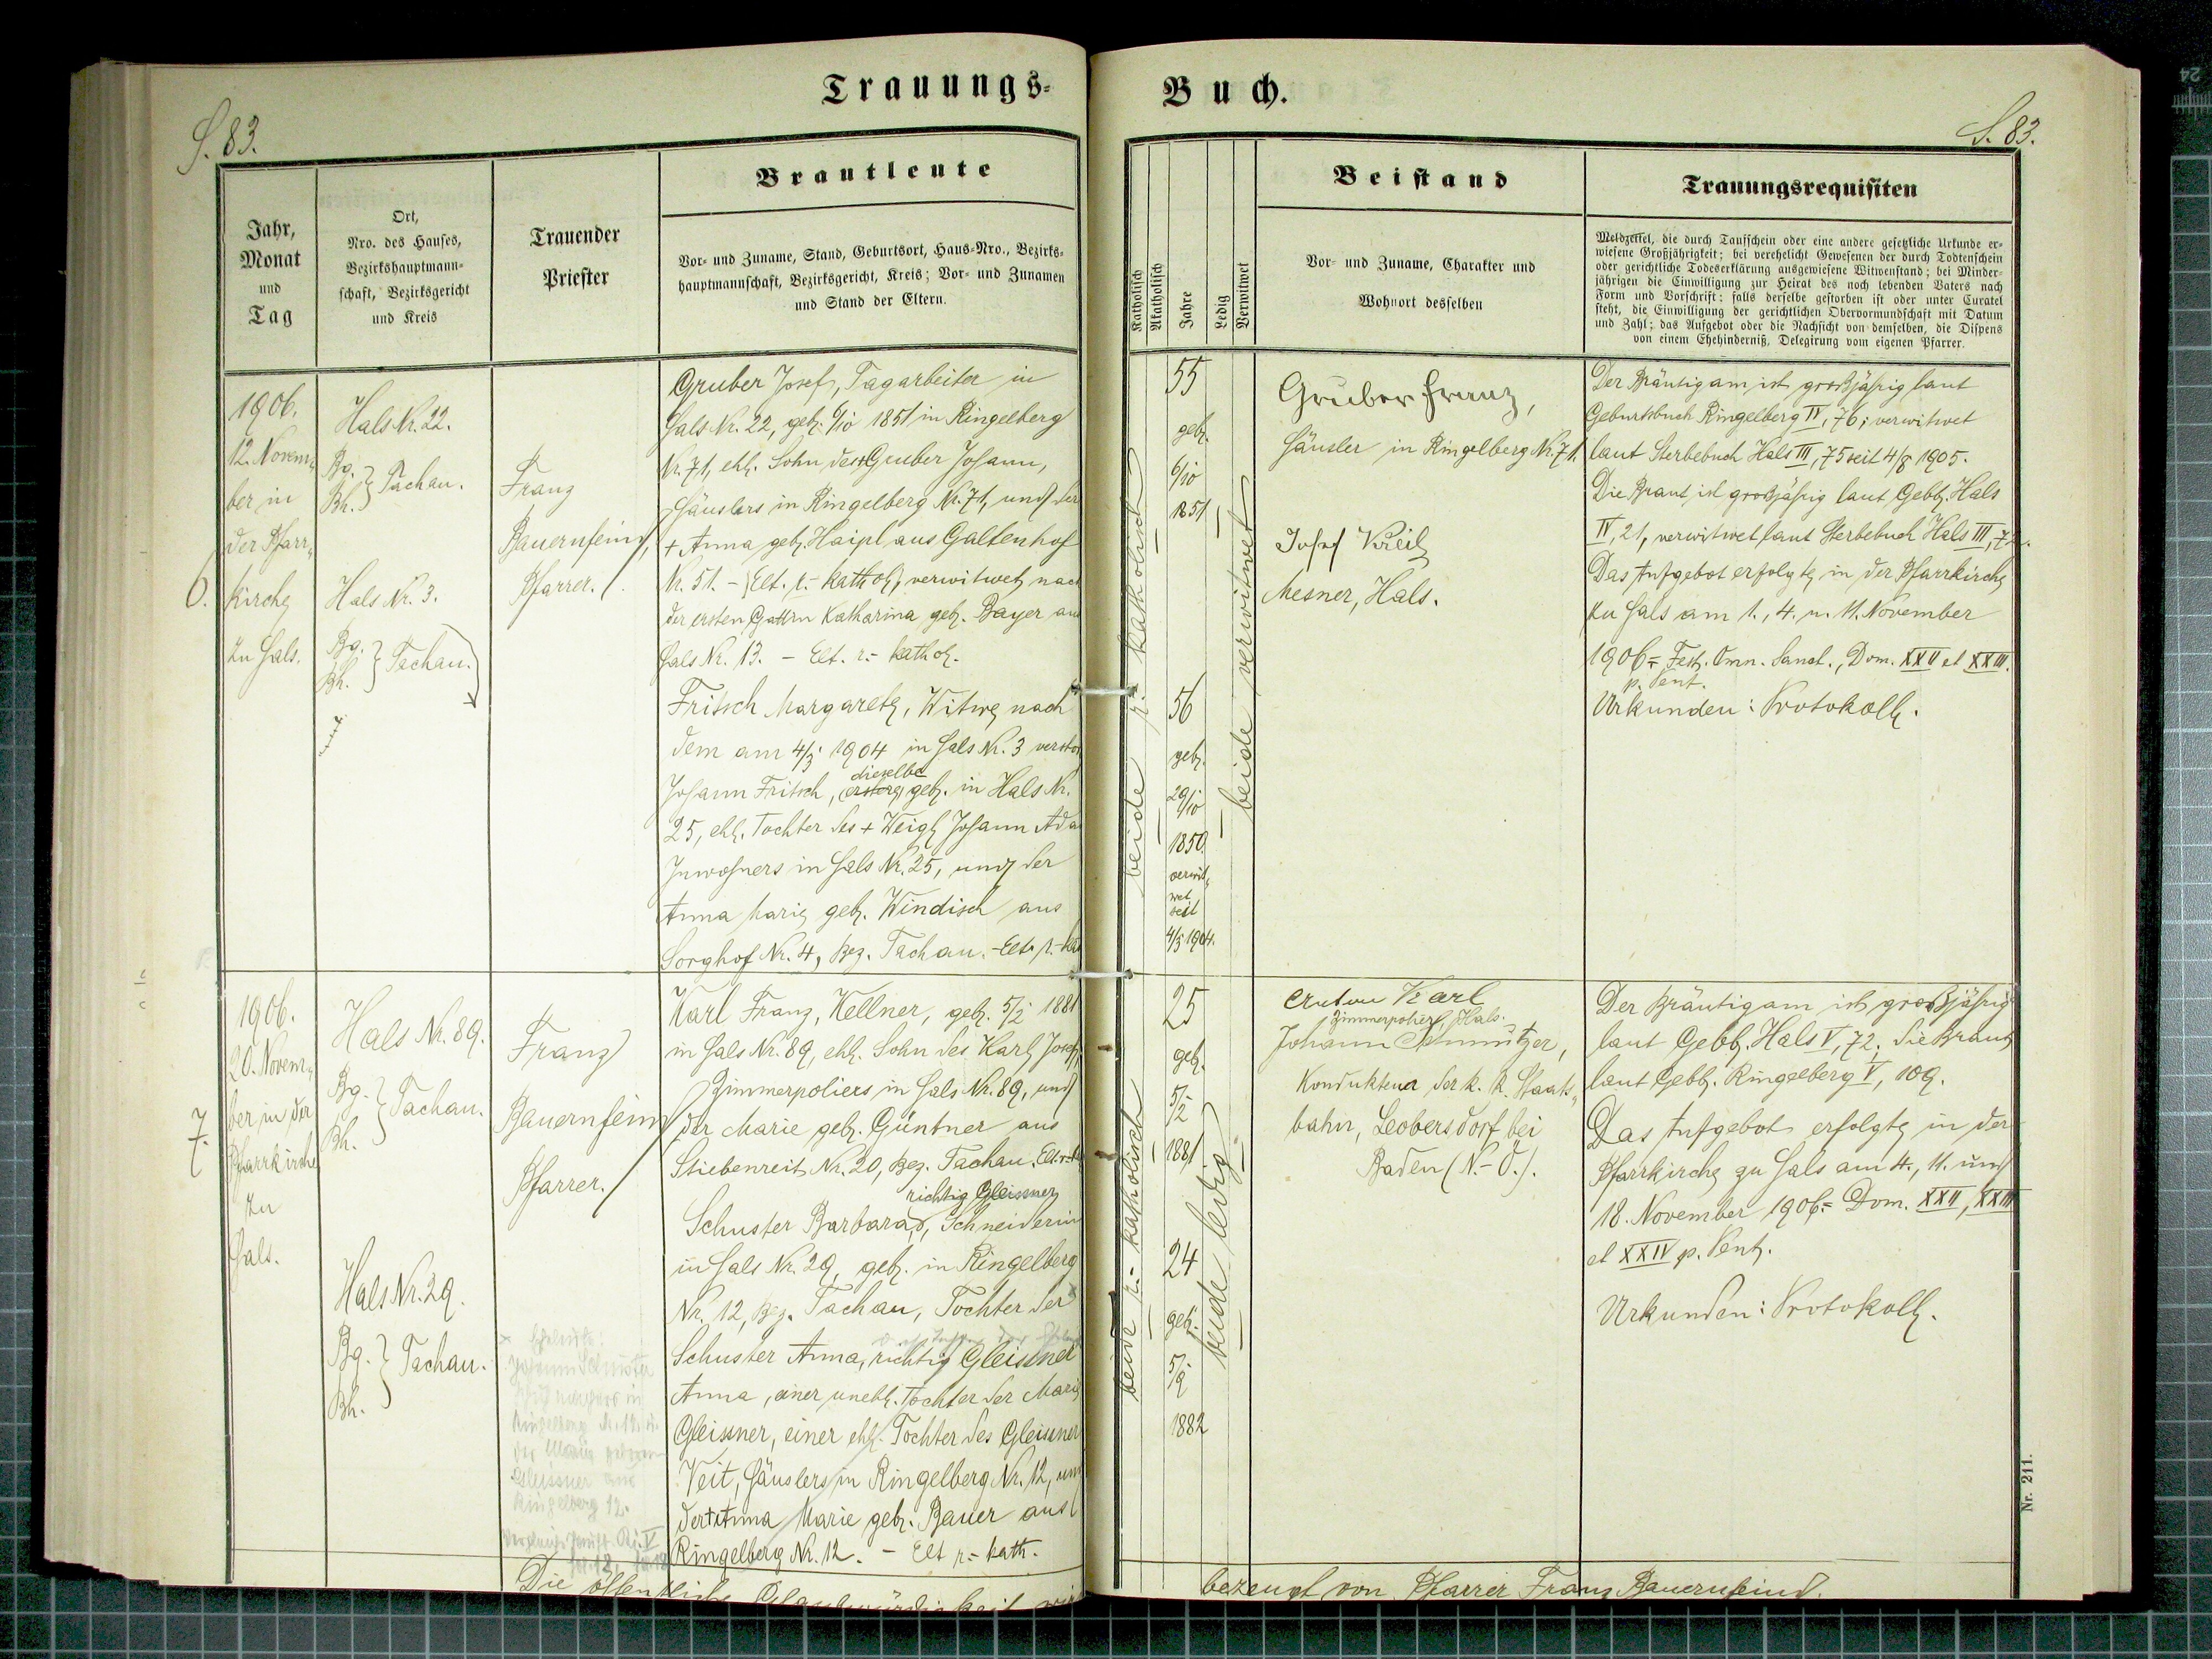 Trauungs-
S. 83.
Jahr,
Monat
und
Tag
Ort,
Nro. des Hauses,
Bezirkshauptmann-
schaft, Bezirksgericht
und Kreis
Trauender
Priester
Brautleute
Vor- und Zuname, Stand, Geburtsort, Haus-Nro., Bezirks-
hauptmannschaft, Bezirksgericht, Kreis; Vor- und Zunamen
und Stand der Eltern.
6.
1906.
12. Novem-
ber in
der Pfarr-
kirche
zu Hals.
Hals Nr. 22.
Bg.
Bh. } Tachau.
Hals Nr. 3.
Bg.
Bh. } Tachau.
Franz
Bauernfeind,
Pfarrer.
Gruber Josef, Tagarbeiter in
Hals Nr. 22, geb. 6/10 1851 in Ringelberg
Nr. 71, ehl. Sohn des + Gruber Johann,
Häuslers in Ringelberg Nr. 71, und der
+ Anna geb. Haipl aus Galtenhof
Nr. 51. - Elt. r.- kathol., verwitwet nach
der ersten Gattin Katharina geb. Bayer aus
Hals Nr. 13. - Elt. r.- kathol.
Fritsch Margareth, Witwe nach
dem am 4/3 1904 in Hals Nr. 3 verstor
Johann Fritsch, dieselbe geb. in Hals Nr.
25, ehl. Tochter des + Weigl Johann Ada
Inwohners in Hals Nr. 25, und der
Anna Marie geb. Windisch aus
Sorghof Nr. 4, Bez. Tachau. - Elt. r.- ka
7.
1906.
20. Novem-
ber in der
Pfarrkirche
zu
Hals.
Hals Nr. 89.
Bg.
Bh. } Tachau.
Hals Nr. 29.
Bg.
Bh. } Tachau.
Franz
Bauernfeind
Pfarrer.
Karl Franz, Kellner, geb. 5/2 1881
in Hals Nr. 89, ehl. Sohn des Karl Josef,
Zimmerpoliers in Hals Nr. 89, und
der Marie geb. Güntner aus
Stiebenreit Nr. 20, Bez. Tachau. Elt. r.-k
richtig Gleissner
Schuster Barbara, Schneiderin
in Hals Nr. 29, geb. in Ringelberg
Nr. 12, Bez. Tachau, Tochter der
Schuster Anna, richtig Gleissner
Anna, einer unehl. Tochter der Marie
Gleissner, einer ehl. Tochter des Gleissner
Veit, Häuslers in Ringelberg Nr. 12, und
der + Anna Marie geb. Bauer aus
Ringelberg Nr. 12. - Elt r.- kath.
Ringelberg 12.
Die öffentliche Glaubwürdigkeit wird
Buch.
S. 83.
Katholisch
Akatholisch
Jahre
Ledig
Verwitwet
Beistand
Vor- und Zuname, Charakter und
Wohnort desselben
Trauungsrequisiten
Meldzettel, die durch Taufschein oder eine andere gesetzliche Urkunde er-
wiesene Großjährigkeit; bei verehelicht Gewesenen der durch Todtenschein
oder gerichtliche Todeserklärung ausgewiesene Witwenstand; bei Minder-
jährigen die Einwilligung zur Heirat des noch lebenden Vaters nach
Form und Vorschrift; falls derselbe gestorben ist oder unter Curatel
steht, die Einwilligung der gerichtlichen Obervormundschaft mit Datum
und Zahl; das Aufgebot oder die Nachsicht von demselben, die Dispens
von einem Ehehinderniß, Delegirung vom eigenen Pfarrer.
beide r.- katholisch
55
geb.
6/10
1851
56
geb.
29/10
1850
verwit-
wet
seit
4/3 1904.
beide verwitwet
Gruber Franz,
Häusler in Ringelberg Nr. 71.
Josef Kreil
Mesner, Hals.
Der Bräutigam ist großjährig laut
Geburtsbuch Ringelberg IV, 76; verwitwet
laut Sterbebuch Hals III, 75 seit 4/8 1905.
Die Braut ist großjährig laut Gebb. Hals
IV, 21, verwitwet laut Sterbebuch Hals III, 72.
Das Aufgebot erfolgte in der Pfarrkirche
zu Hals am 1., 4. u. 11. November
1906 = Fest. Omn. Sanct., Dom. XXII et XXIII.
p. Pent.
Urkunden: Protokoll.
beide r.- katholisch
25
geb.
5/2
1881
24
geb.
5/9
1882
beide ledig
Anton Karl
Zimmerpolier, Hals.
Johann Schmutzer,
Kondukteur der k. k. Staats-
bahn, Leobersdorf bei
Baden (N.-Ö.).
Der Bräutigam ist großjährig
laut Gebb. Hals V, 72. die Braut
laut Gebb. Ringelberg V, 109.
Das Aufgebot erfolgte in der
Pfarrkirche zu Hals am 4., 11. und
18. November 1906 = Dom. XXII, XXIII
et XXIV p. Pent.
Urkunden: Protokoll.
Nr. 211.
bezeugt von Pfarrer Franz Bauernfeind.